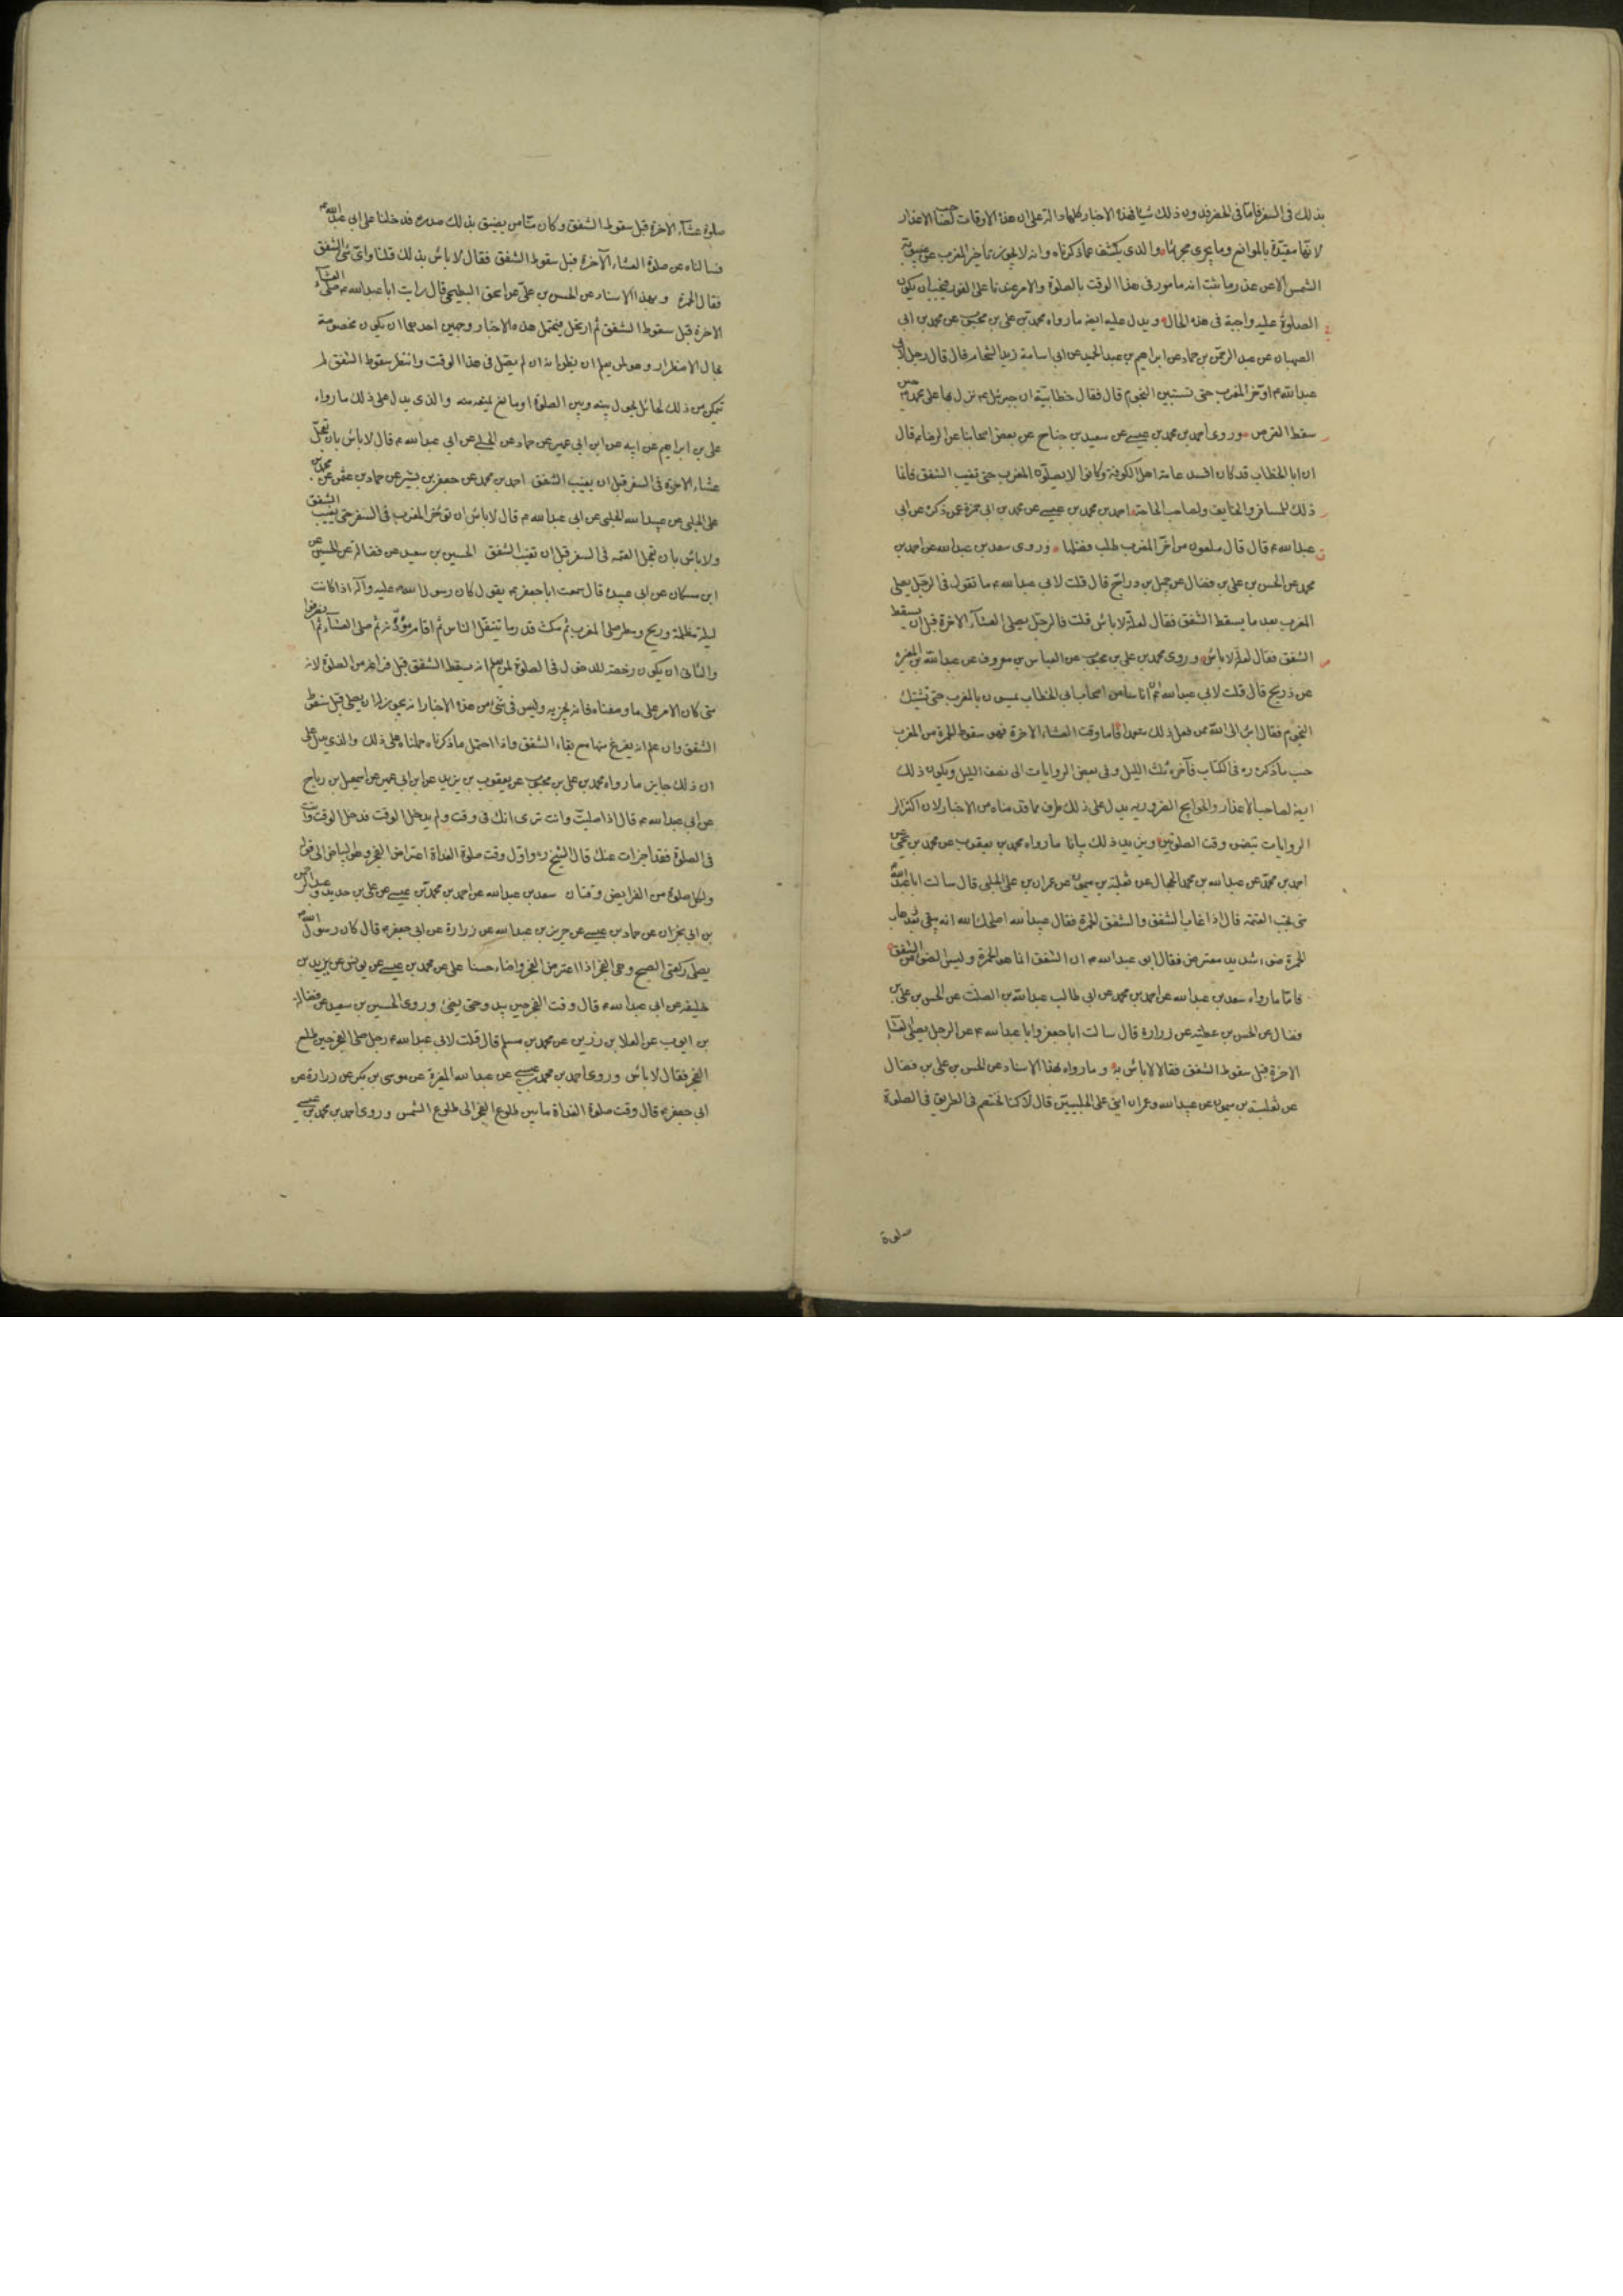 بذلك في السفر فاما في الحضر فبدون ذلك شيأ فهذه الاخبار كلها دالة على ان هذه الاوقات لصاحب الاعذار
لانها مقيدة بالموانع وما يجري مجراها والذي يكشف عما ذكرناه وانه لا يجوز تاخير المغرب عن غيبوبة
الشمس الا عن عذر ما ثبت انه مامور في هذا الوقت بالصلوة والامر عندنا على الفور فيجب ان يكون
الصلوة عليه واجبة في هذه الحال ويدل عليه ايضا ما رواه محمد بن علي بن محبوب عن محمد بن ابي
الصهبان عن عبد الرحمن بن حماد عن ابراهيم بن عبد الحميد عن ابي اسامة زيد الشحام قال قال رجل لابي
عبد الله م اؤخر المغرب حتى تستبين النجوم قال فقال خطابية ان جبرئيل م نزل بها على محمد ص حين
سقط القرص وروى احمد بن محمد بن عيسى عن سعيد بن جناح عن بعض اصحابنا عن الرضا م قال
ان ابا الخطاب قد كان افسد عامة اهل الكوفة وكانوا لا يصلون المغرب حتى تغيب الشفق وانما
ذلك للمسافر والخايف ولصاحب الحاجة احمد بن محمد بن عيسى عن محمد بن ابي حمزة عمن ذكره عن ابي
عبد الله م قال قال ملعون من اخر المغرب طلب فضلها وروى سعد بن عبد الله عن احمد بن
محمد عن الحسن بن علي بن فضال عن جميل بن دراج قال قلت لابي عبد الله م ما تقول في الرجل يصلي
المغرب بعد ما يسقط الشفق فقال لعلة لا باس قلت فالرجل يصلي العشاء الاخرة قبل ان يسقط
الشفق فقال لعلة لا باس وروى محمد بن علي بن محبوب عن العباس بن معروف عن عبد الله بن المغيرة
عن ذريح قال قلت لابي عبد الله م ان اناسا من اصحاب ابي الخطاب يمسون بالمغرب حتى تشتبك
النجوم فقال ابرأ الى الله ممن فعل ذلك متعمدا فاما وقت العشاء الاخرة فهو سقوط الحمرة من المغرب
حسب ما ذكره ره في الكتاب فآخره ثلث الليل وفي بعض الروايات الى نصف الليل ويكون ذلك
ايضا لصاحب الاعذار والحوايج الضرورية يدل على ذلك طرف مما قدمناه من الاخبار لان اكثر
الروايات تتضمن وقت الصلوتين ويزيد ذلك بيانا ما رواه محمد بن يعقوب عن محمد بن يحيى عن
احمد بن محمد عن عبد الله بن محمد الحجال عن ثعلبة بن ميمون عن عمران بن علي الحلبي قال سالت ابا عبد الله م
متى تجب العتمة قال اذا غاب الشفق والشفق الحمرة فقال عبيد الله اصلحك الله انه يبقى بعد ذهاب
الحمرة ضوء شديد معترض فقال ابو عبد الله م ان الشفق انما هو الحمرة وليس الضوء من الشفق
فاما ما رواه سعد بن عبد الله عن احمد بن محمد عن ابي طالب عبد الله بن الصلت عن الحسن بن علي بن
فضال عن الحسن بن عطية عن زرارة قال سالت ابا جعفر وابا عبد الله م عن الرجل يصلي العشاء
الاخرة قبل سقوط الشفق فقالا لا باس به وما رواه بهذا الاسناد عن الحسن بن علي بن فضال
عن ثعلبة بن ميمون عن عبيد الله وعمران ابني علي الحلبيين قال كنا نختصم في الطريق في الصلوة
صلوة
صلوة عشاء الاخرة قبل سقوط الشفق وكان منا من يضيق بذلك صدره فدخلنا على ابي عبد الله م
فسالناه عن صلوة العشاء الآخرة قبل سقوط الشفق فقال لا باس بذلك قلنا واي شئ الشفق
فقال الحمرة وبهذا الاسناد عن الحسن بن علي عن اسحق البطيحي قال رايت ابا عبد الله م صلى العشاء
الاخرة قبل سقوط الشفق ثم ارتحل فيحتمل هذه الاخبار وجهين احدهما ان يكون مخصوصة
بحال الاضطرار وهو لمن يعلم ان يظن انه ان لم يصل في هذا الوقت وانتظر سقوط الشفق لم
يتمكن من ذلك لحائل يحول بينه وبين الصلوة او مانع يمنعه منه والذي يدل على ذلك ما رواه
علي بن ابراهيم عن ابيه عن ابن ابي عمير عن حماد عن الحلبي عن ابي عبد الله م قال لا باس بان تعجل
عشاء الاخرة في السفر قبل ان يغيب الشفق احمد بن محمد عن جعفر بن بشير عن حماد بن عثمن عن محمد بن
علي الحلبي عن عبيد الله الحلبي عن ابي عبد الله م قال لا باس ان تؤخر المغرب في السفر حتى يغيب الشفق
ولا باس بان تعجل العتمة في السفر قبل ان تغيب الشفق الحسين بن سعيد عن فضالة عن الحسين عن
ابن مسكان عن ابي عبيدة قال سمعت ابا جعفر م يقول كان رسول الله م عليه وآله اذا كانت
ليلة مظلمة وريح ومطر صلى المغرب ثم مكث قدر ما يتنفل الناس ثم اقام مؤذنه ثم صلى العشاء ثم انصرفوا
والثاني ان يكون رخصة للدخول في الصلوة لمن يعلم انه يسقط الشفق قبل فراغه من الصلوة لانه
متى كان الامر على ما وصفناه فانه يجزيه وليس في شئ من هذه الاخبار انه يجوز له ان يصلي قبل سقوط
الشفق وان علم انه يفرغ منها مع بقاء الشفق واذا احتمل ما ذكرناه حملناه على ذلك والذي يدل على
ان ذلك جايز ما رواه محمد بن علي بن محبوب عن يعقوب بن يزيد عن ابن ابي عمير عن اسمعيل بن رباح
عن ابي عبد الله م قال اذا صليت وانت ترى انك في وقت ولم يدخل الوقت فدخل الوقت وانت
في الصلوة فقد اجزات عنك قال الشيخ ره واول وقت صلوة الغداة اعتراض الفجر وهو البياض الى قوله
ولكل صلوة من الفرايض وقتان سعد بن عبد الله عن احمد بن محمد بن عيسى عن علي بن حديد وعبد الرحمن
بن ابي نجران عن حماد بن عيسى عن حريز بن عبد الله عن زرارة عن ابي جعفر م قال كان رسول الله ص
يصلي ركعتي الصبح وهي الفجر اذا اعترض الفجر واضاء حسنا علي عن محمد بن عيسى عن يونس عن يزيد بن
خليفة عن ابي عبد الله م قال وقت الفجر حين يبدو حتى يضئ وروى الحسين بن سعيد عن فضالة
بن ايوب عن العلا بن رزين عن محمد بن مسلم قال قلت لابي عبد الله م رجل صلى الفجر حين طلع
الفجر فقال لا باس وروى احمد بن محمد بن عيسى عن عبد الله المغيرة عن موسى بن بكر عن زرارة عن
ابي جعفر م قال وقت صلوة الغداة ما بين طلوع الفجر الى طلوع الشمس وروى احمد بن محمد بن عيسى